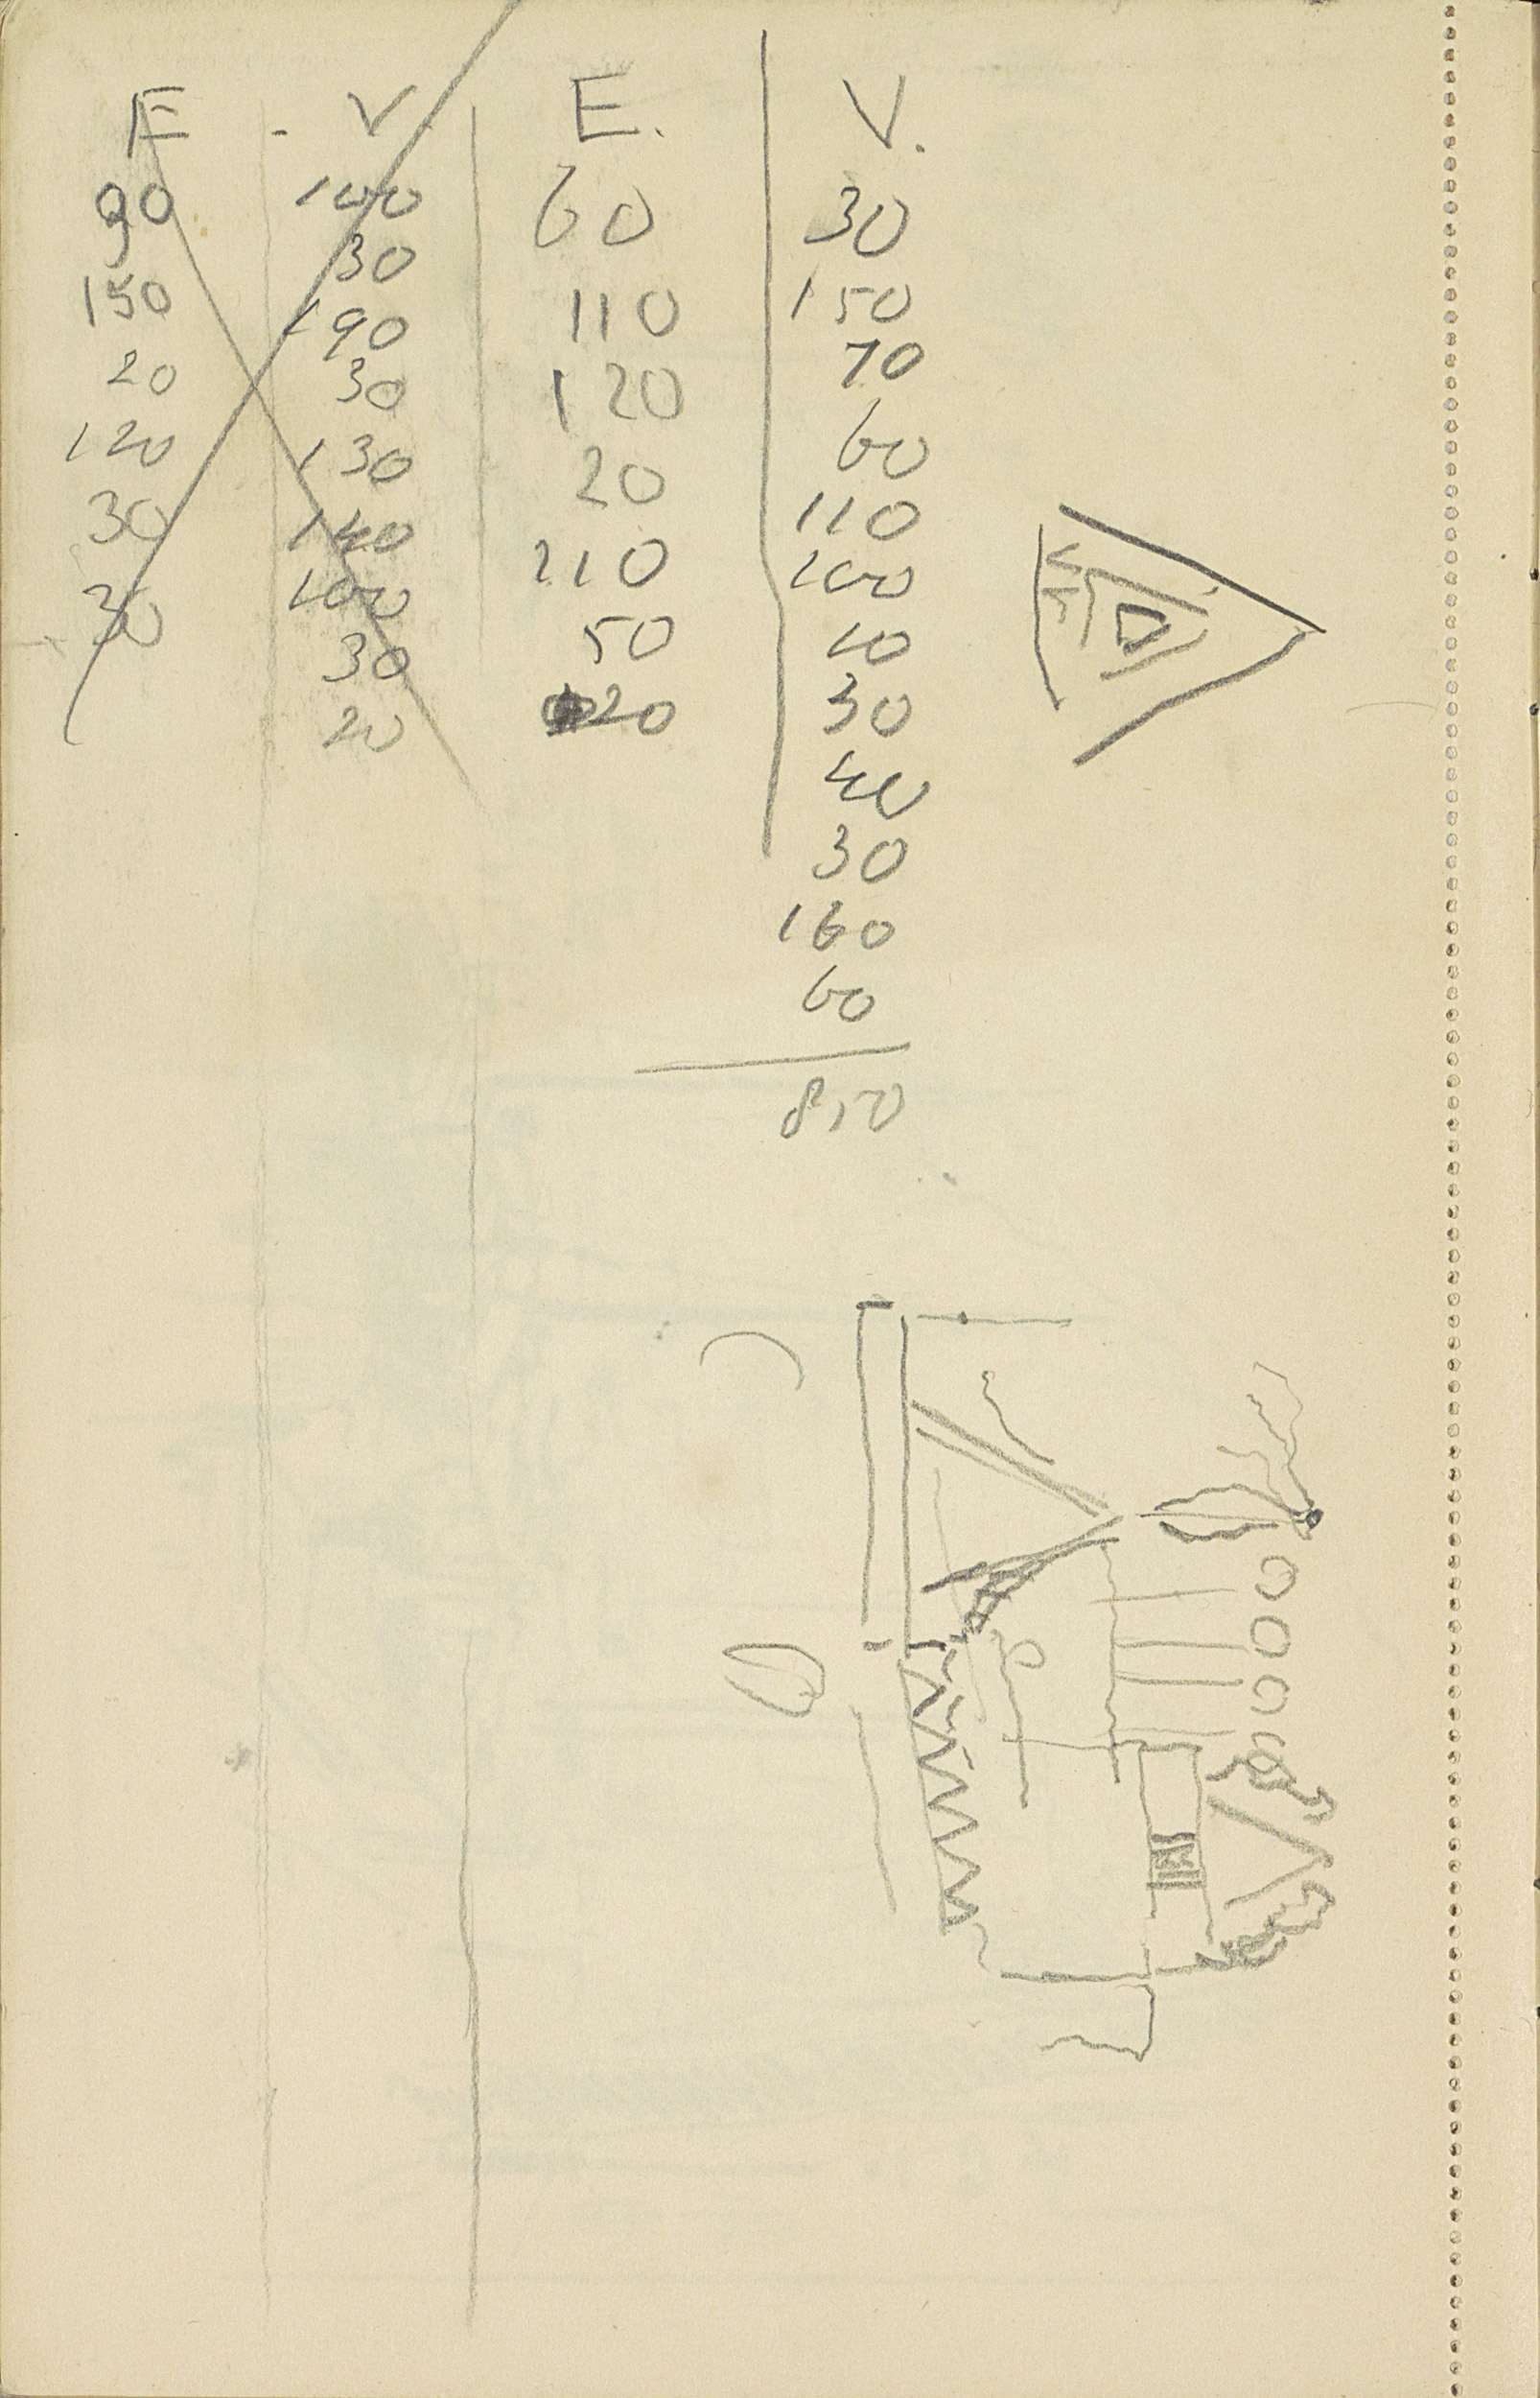 E - V E. V.
90 100 60 30
30 150
150 190 110 70
20 30 120 60
120 130 20 110
30 140 110 100
30 100 50 40
30 20 30
20 40
30
160
60
850